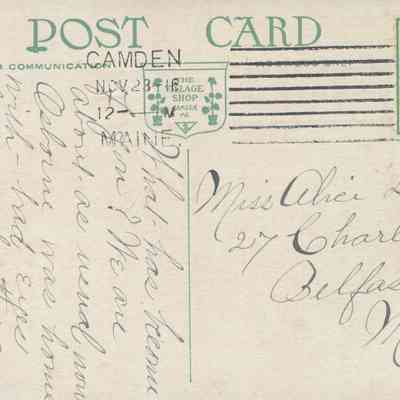 POST CARD
COMMUNICATION
CAMDEN
NOV 23
12 — M
MAINE.
THE
VILLAGE
SHOP
What has become
you? We are
about as usual now
Osborne was home
with - had
Miss Alice
27 Charl
Belfas
M